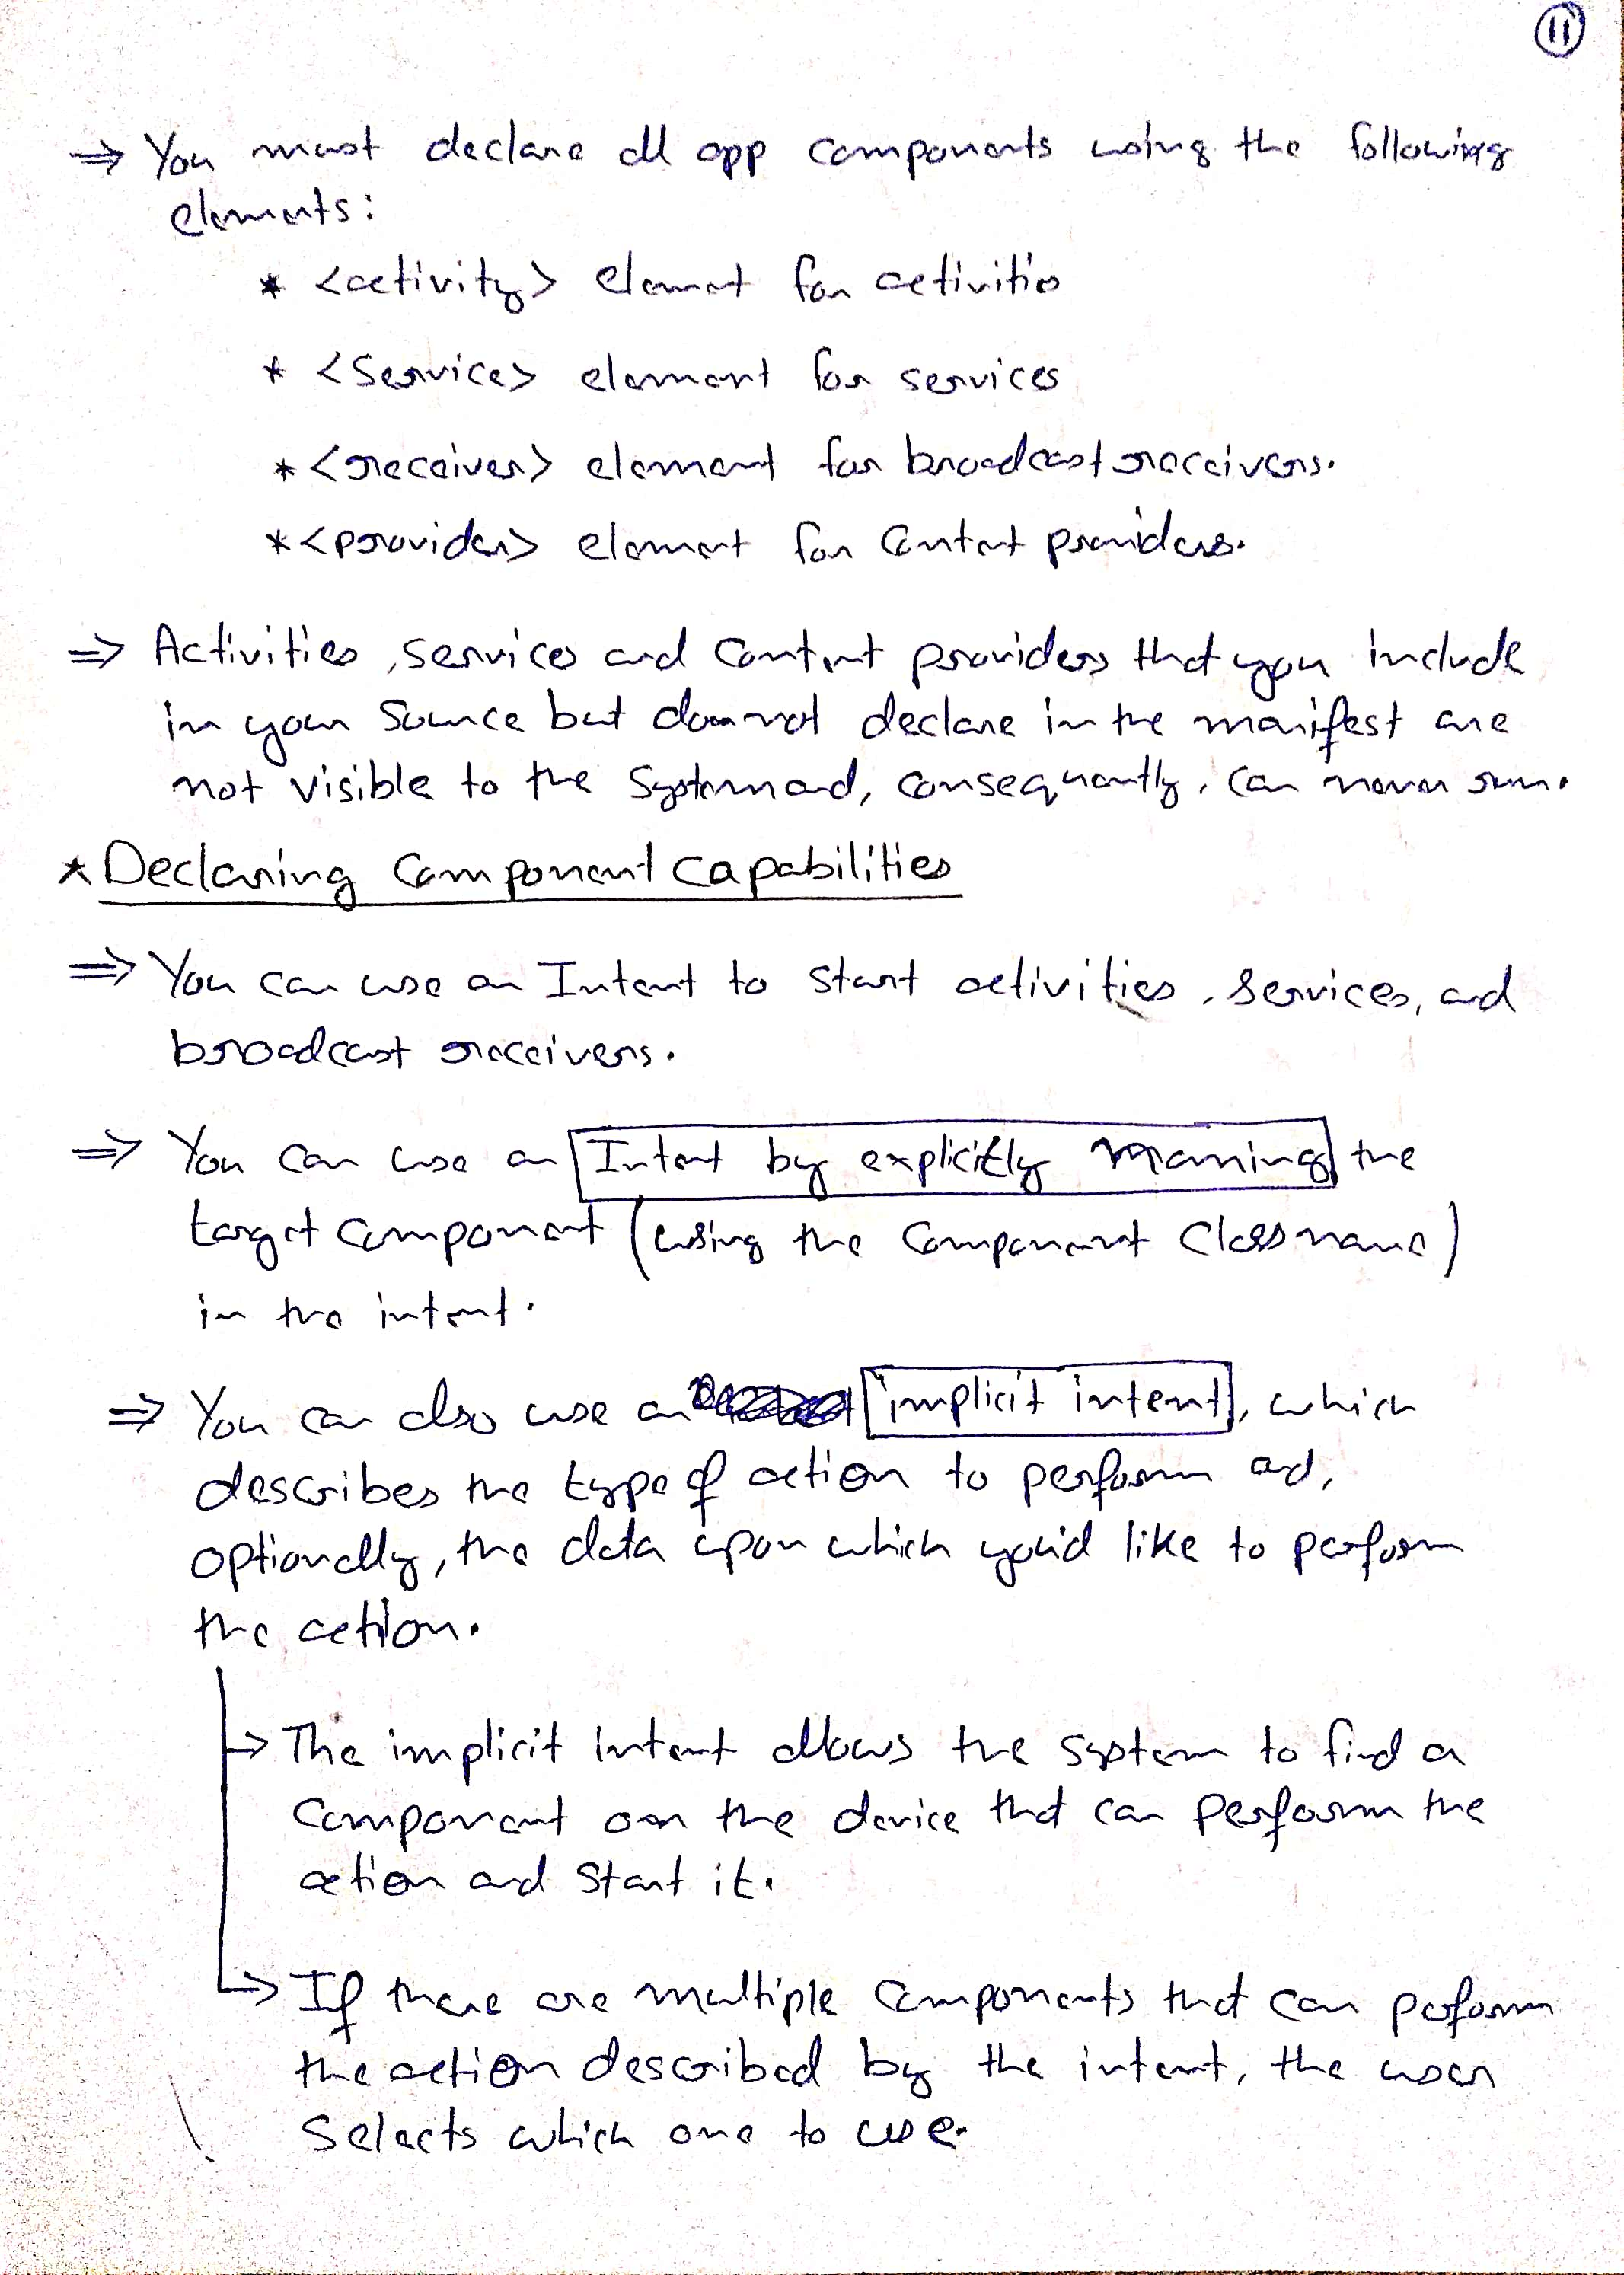 11
⇒ You must declare all app components using the following
elements:
* <activity> element for activities
* <service> element for services
* <receiver> element for broadcast receivers.
* <provider> element for Content providers.
⇒ Activities, services and Content providers that you include
in your Source but do not declare in the manifest are
not visible to the System and, consequently, can never run.
* Declaring Component Capabilities
⇒ You can use an Intent to start activities, services, and
broadcast receivers.
⇒ You can use an Intent by explicitly naming the
target component (using the Component Class name)
in the intent.
⇒ You can also use an implicit intent, which
describes the type of action to perform and,
optionally, the data upon which you'd like to perform
the action.
→ The implicit intent allows the system to find a
Component on the device that can perform the
action and start it.
→ If there are multiple Components that can perform
the action described by the intent, the user
Selects which one to use.